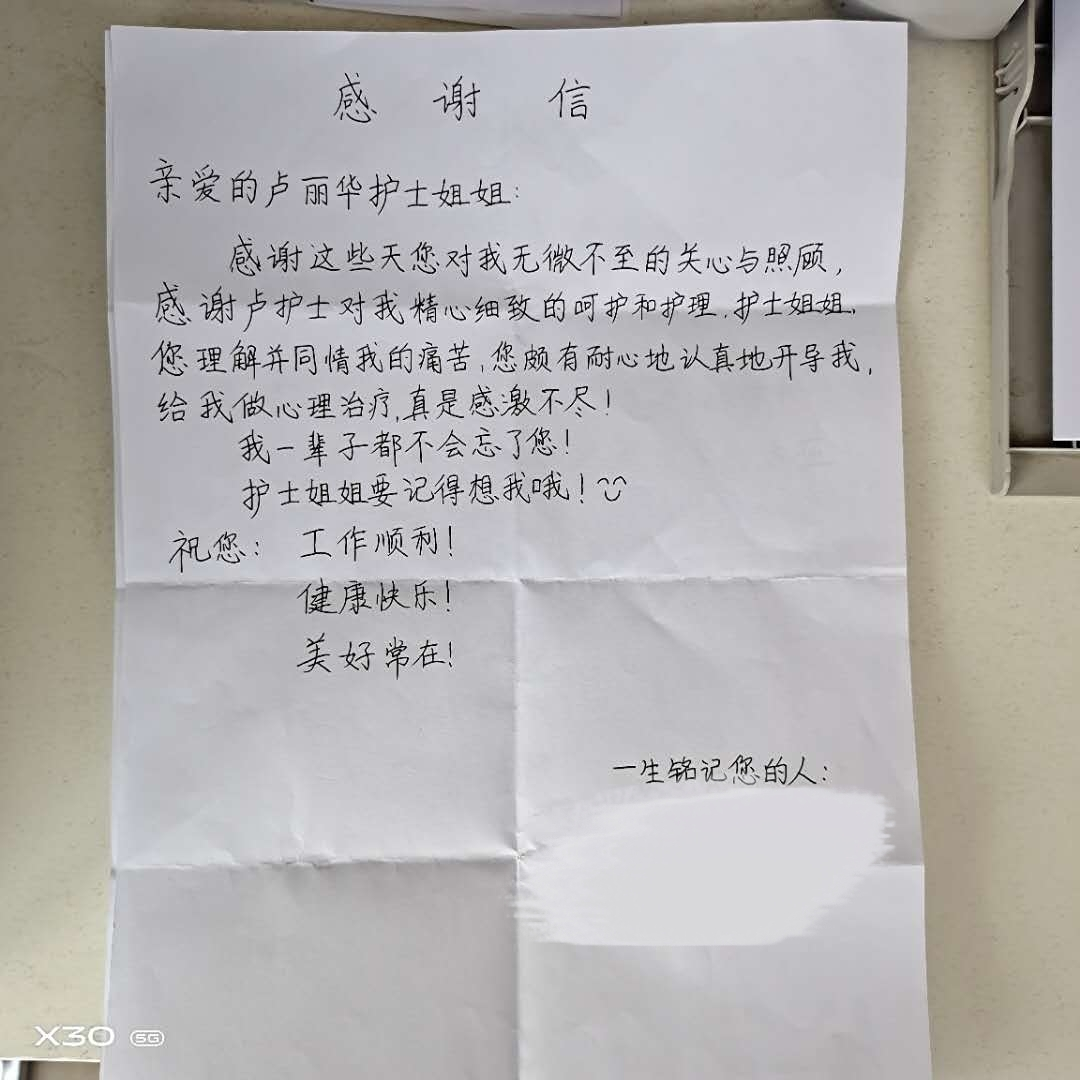 感谢信
亲爱的卢丽华护士姐姐:
感谢这些天您对我无微不至的关心与照顾,
感谢卢护士对我精心细致的呵护和护理.护士姐姐,
您理解并同情我的痛苦,您颇有耐心地认真地开导我,
给我做心理治疗,真是感激不尽!
我一辈子都不会忘了您!
护士姐姐要记得想我哦!
祝您: 工作顺利!
健康快乐!
美好常在!
一生铭记您的人:
X30 5G